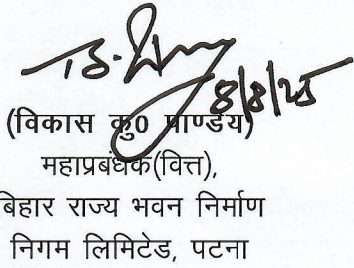 8/8/25
(विकास कु0 पाण्डेय)
महाप्रबंधक(वित्त),
बिहार राज्य भवन निर्माण
निगम लिमिटेड, पटना